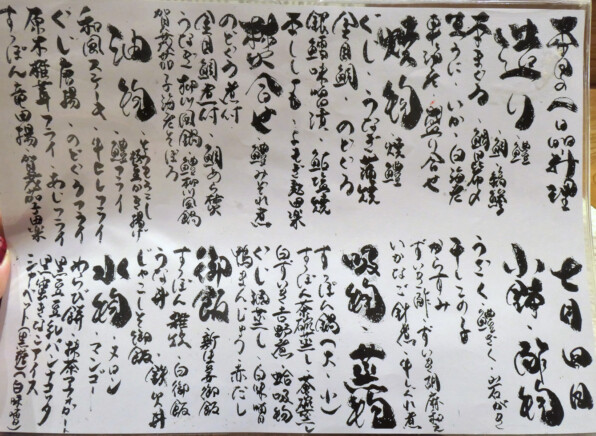 本日の一品料理
造り
鱧
鯛・鶴鱗
本まぐろ・鯛昆布〆
生うに・いか・白海老
車海老・盛り合せ
焼物
焼鱧
ぐじ・うなぎ蒲焼
金目鯛・のどぐろ
銀鱈味噌漬・鮎塩焼
よもぎ麩田楽
焚合せ
鱧みぞれ煮
のどぐろ煮付
金目鯛煮付
鯛あら焚
うなぎ柳川風鍋・鱧柳川風鍋
賀茂茄子海老そぼろ
油物
とうもろこし
桜海老かき揚
鱧フライ
和風ステーキ・牛ヒレフライ
ぐじ唐揚・のどぐろフライ
原木椎茸フライ・あじフライ
すっぽん竜田揚・賀茂茄子田楽
七月四日
小鉢・酢物
うざく・鱧ざく・岩もずく
干しこの子
からすみ
ずいき酢・ずいき胡麻和え
いかなご釘煮・牛しぐれ煮
吸物
蒸物
すっぽん鍋(大・小)
すっぽん茶碗蒸し・茶碗蒸し
白ずいき吉野煮・蛤吸物
ぐじ蕪蒸し・白味噌
鴨まんじゅう・赤だし
御飯
新生姜御飯
すっぽん雑炊・白御飯
うな丼・鉄火丼
じゃこしそ御飯
水物
メロン
マンゴー
わらび餅・抹茶
黒豆豆乳パンナコッタ
黒蜜きなこアイス
シャーベット(黒糖)(白味噌)